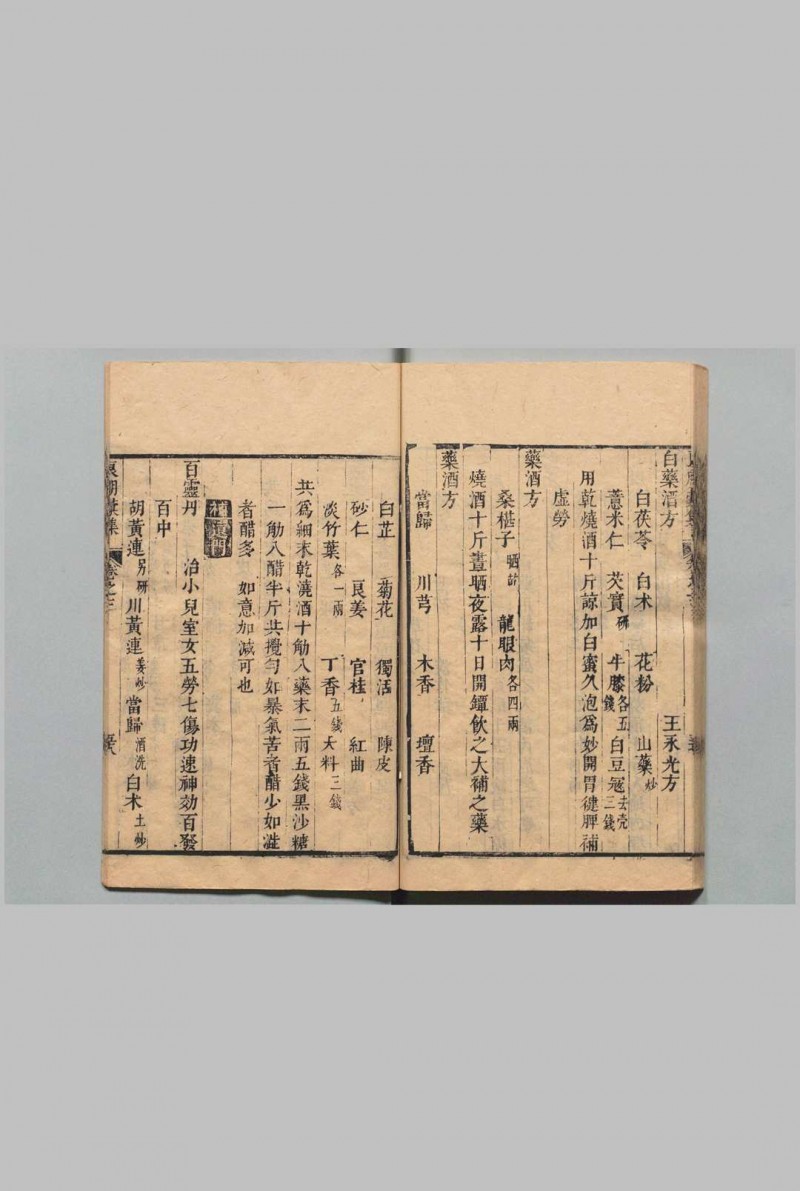 白藥酒方 王永光方
白茯苓 白术 花粉 山藥炒
薏米仁 芡實研 牛膝各五錢 白豆蔻去売三錢
用乾燒酒十斤諒加白蜜久泡爲妙開胃徤脾補
虛勞
藥酒方
桑椹子晒乾 龍眼肉各四兩
燒酒十斤晝晒夜露十日開罈飮之大補之藥
藥酒方
當歸 川芎 木香 壇香
白芷 菊花 獨活 陳皮
砂仁 良姜 官桂 紅曲
淡竹葉各一兩 丁香五錢 大料三錢
共爲細末乾燒酒十觔入藥末二兩五錢黑沙糖
一觔八醋半斤共攪勻如暴氣苦者醋少如澁
者醋多 如意加减可也
百靈丹 治小兒室女五勞七傷功速神効百發
百中
胡黃連另研 川黃連姜炒 當歸酒洗 白术土炒